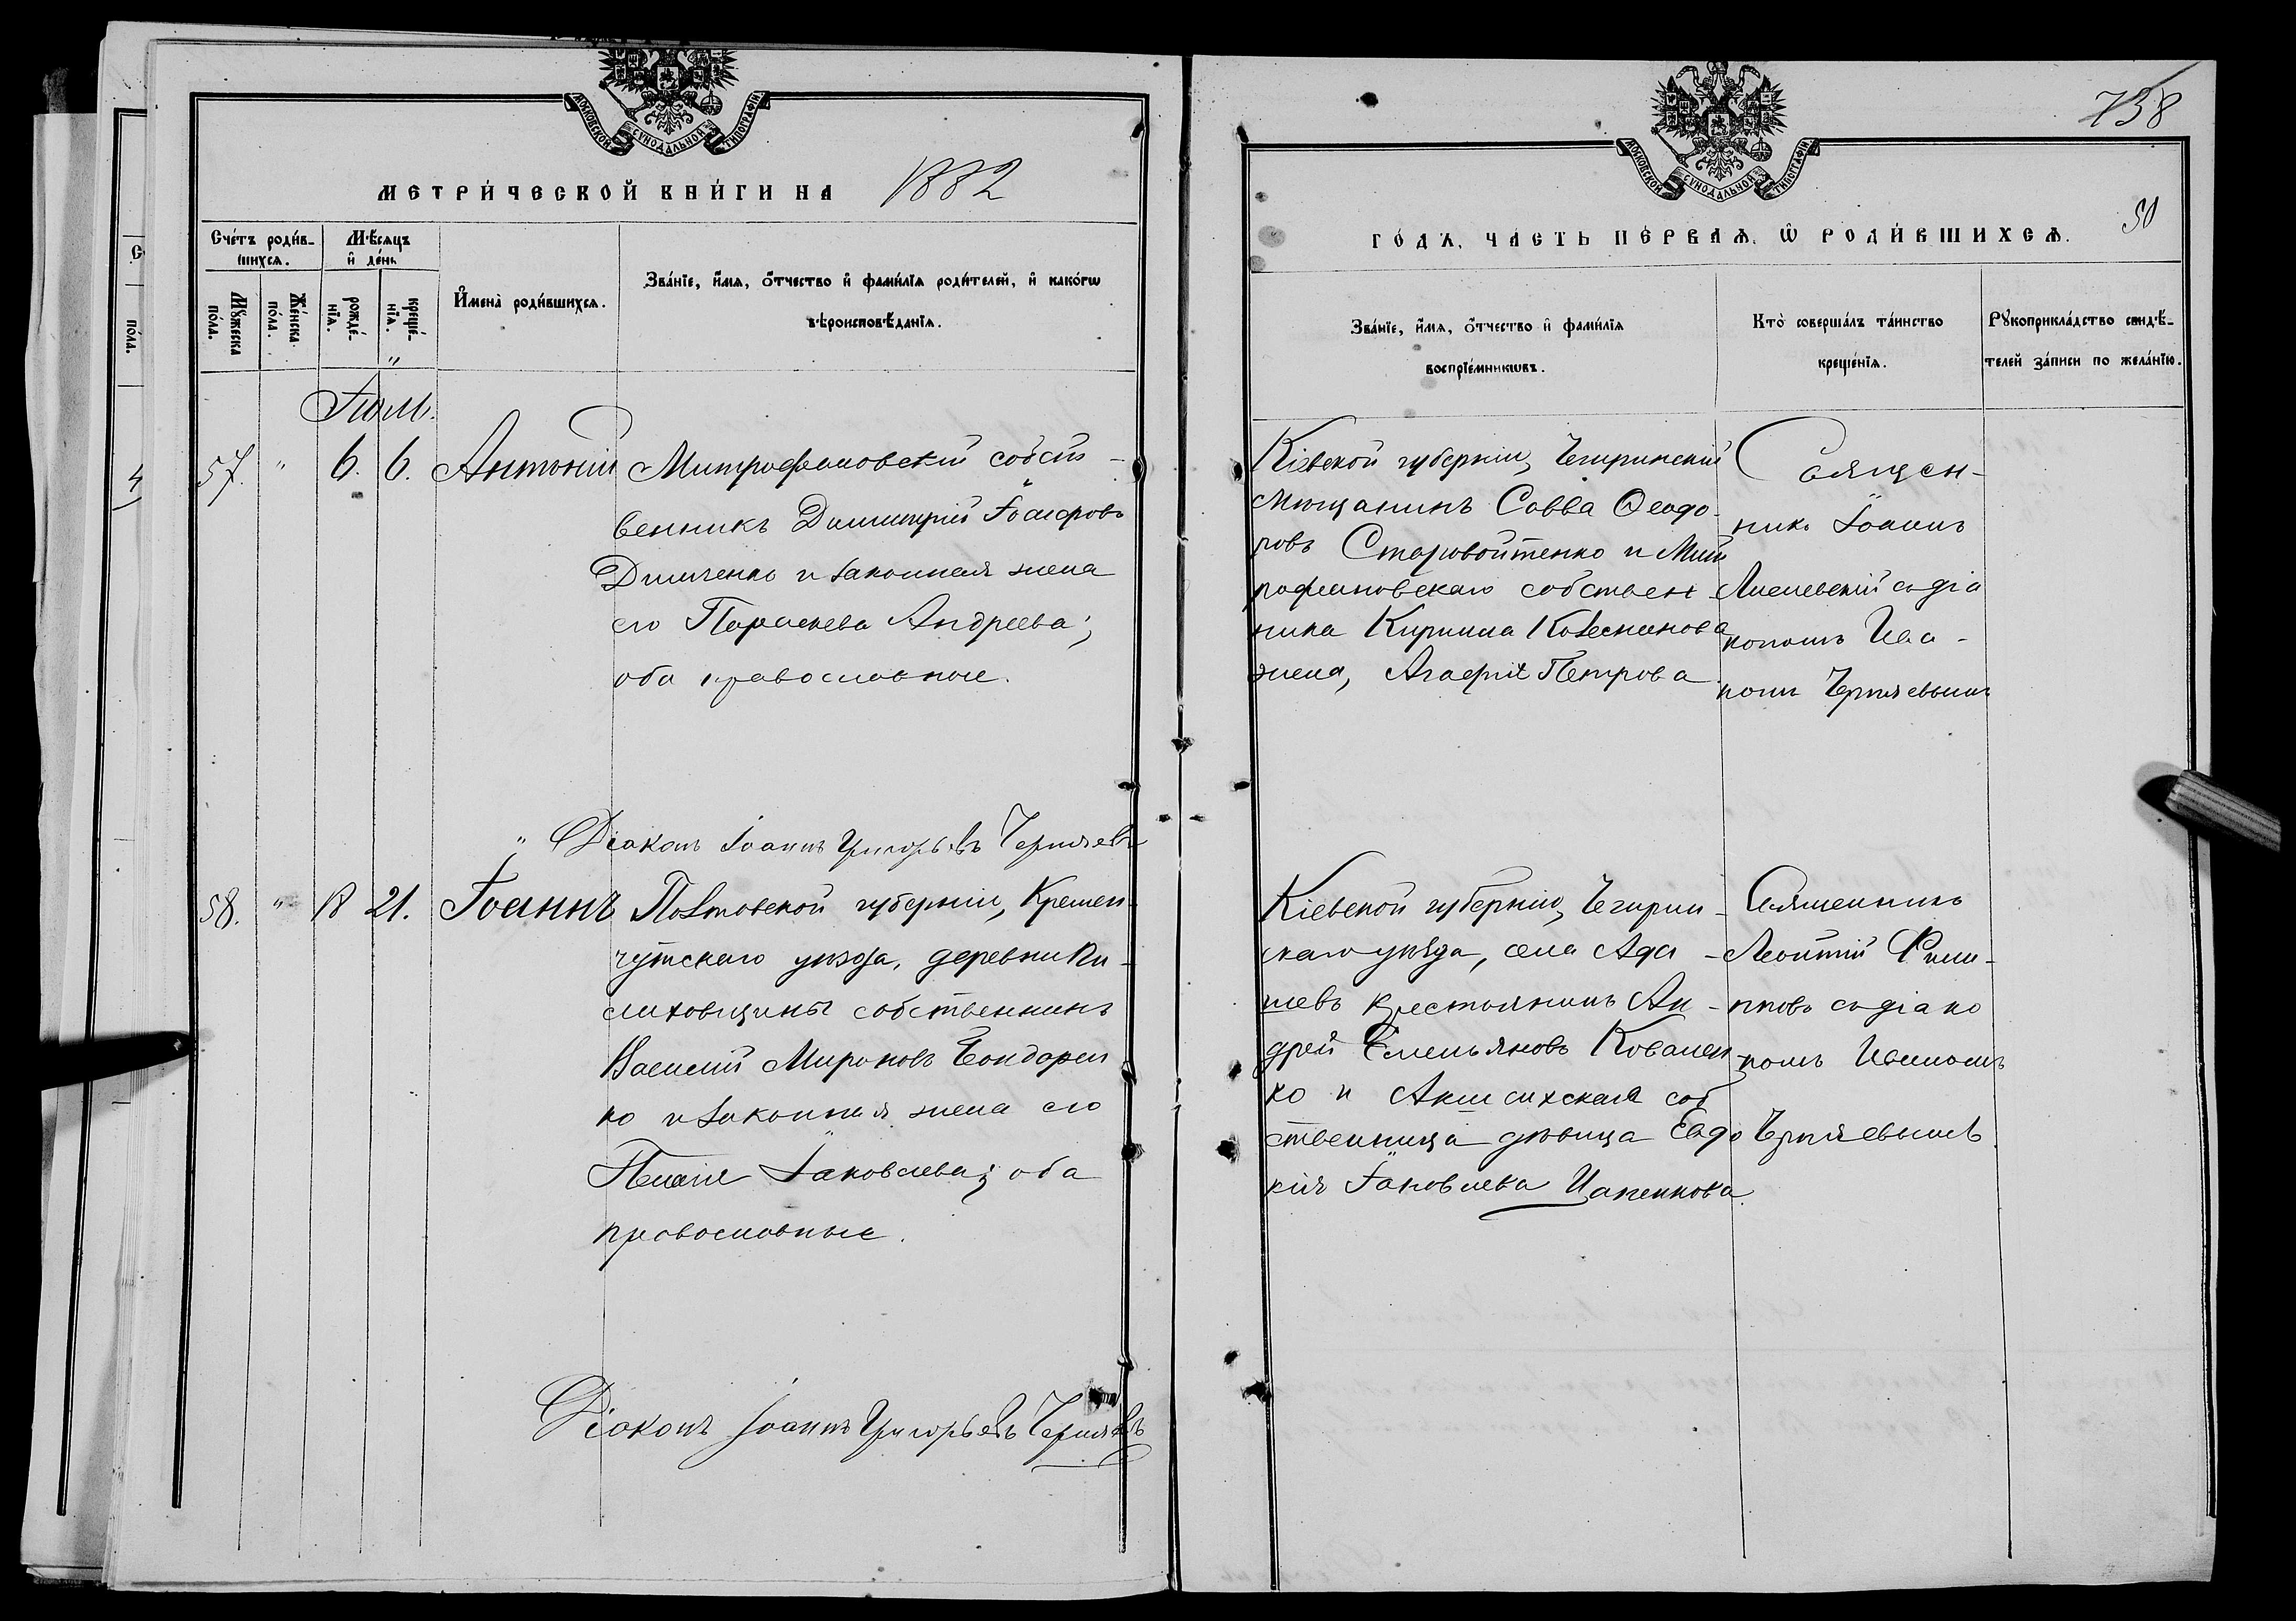 МОСКОВСКОЙ СѴНОДАЛЬНОЙ ТИПОГРАФІИ
МЕТРИ́ЧЕСКОЙ КНИ́ГИ НА 1882
Сче́тъ роди́в-
шихсѧ.
Мѣ́сѧцъ
и҆ де́нь
Мꙋ́жеска
по́ла.
Же́нска
по́ла.
рожде́-
нїѧ.
креще́-
нїѧ.
И҆мена̀ роди́вшихсѧ.
Зва́нїе, и҆́мѧ, ѻ҆́тчество и҆ фами́лїѧ роди́телей, и҆ како́гѡ
вѣроисповѣ́данїѧ.
Іюль.
57. " 6. 6. Антоній
Митрофановскій собст-
венникъ Димитрій Іосифовъ
Димченко и законная жена
его Параскева Андреева;
оба православные.
" Діаконъ Іоаннъ Григорьевъ Черняевъ
58. " 18 21. Іоаннъ
Полтавской губерніи, Кремен-
чугскаго уѣзда, деревни Ки-
слиховщины собственникъ
Василий Мироновъ Бондарен
ко и законная жена его
Пелагія Іаковлева; оба
православные.
Діаконъ Іоаннъ Григорьевъ Черняевъ
758
МОСКОВСКОЙ СѴНОДАЛЬНОЙ ТИПОГРАФІИ
50
ГО́ДЪ, ЧА́СТЬ ПЕ́РВАѦ, Ѡ҆ РОДИ́ВШИХСѦ.
Зва́нїе, и҆́мѧ, ѻ҆́тчество и҆ фами́лїѧ
воспрїе́мникѡвъ.
Кто̀ соверша́лъ та́инство
креще́нїѧ.
Рꙋкоприкла́дство свидѣ́-
телей за́писи по жела́нїю.
Кіевской губерніи, Чигиринскій
мѣщанинъ Савва Ѳеодо-
ровъ Старовойтенко и Мит
рофановскаго собствен-
ника Кирилла Колесникова
жена, Агафія Петрова
Священ-
никъ Іоаннъ
съ діа
кономъ Іоан-
номъ Черняевымъ
Кіевской губерніи, Чигирин-
скаго уѣзда, села Ада-
шевъ крестьянинъ Ан-
дрей Емельяновъ Ковален-
ко и соб
ственница дѣвица Евдо
кія Іаковлева Цапенкова.
Священникъ
Леонтій Фили-
пповъ съ діако
номъ Іоанномъ
Черняевымъ.